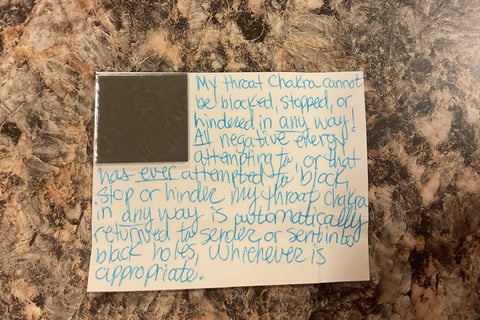 My throat Chakra cannot
be blocked, stopped, or
hindered in any way!
All negative energy
attempting to, or that
has ever attempted to block,
stop or hinder my throat chakra
in any way is automatically
returned to sender or sent into
black holes, Whichever is
appropriate.